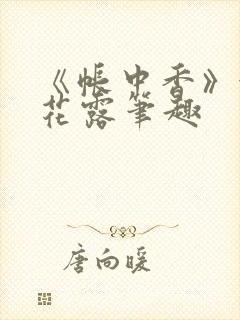 《帐中香》
花露笔趣
唐向暖